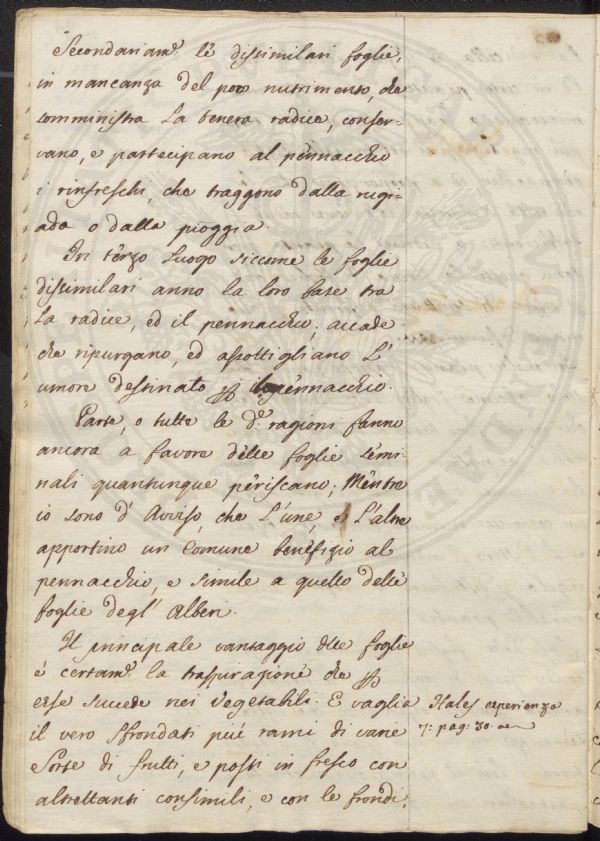 Secondariam.e le dissimilari foglie,
in mancanza del poco nutrimento, che
somministra La tenera radice, conser-
vano, e partecipano al pennacchio
i rinfreschi, che traggono dalla rugi-
ada o dalla pioggia.
In terzo Luogo siccome le foglie
dissimilari anno la loro base tra
La radice, ed il pennacchio, accade
che ripurgano, ed assottigliano L'
umore destinato p il pennacchio.
Parte, o tutte le d.e ragioni fanno
ancora a favore delle foglie semi-
nali quantunque periscano; Mentre
io sono d' Avviso, che L'une, e L'altre
apportino un Comune benefizio al
pennacchio, e simile a quello delle
foglie degl' Alberi.
Il principale vantaggio dlle foglie
è certam.e la traspirazione che p
esse succede nei Vegetabili. E vaglia
il vero Sfrondati più rami di varie
Sorte di frutti, e posti in fresco con
altrettanti consimili, e con le frondi,
Hales esperienza
7: pag: 30.